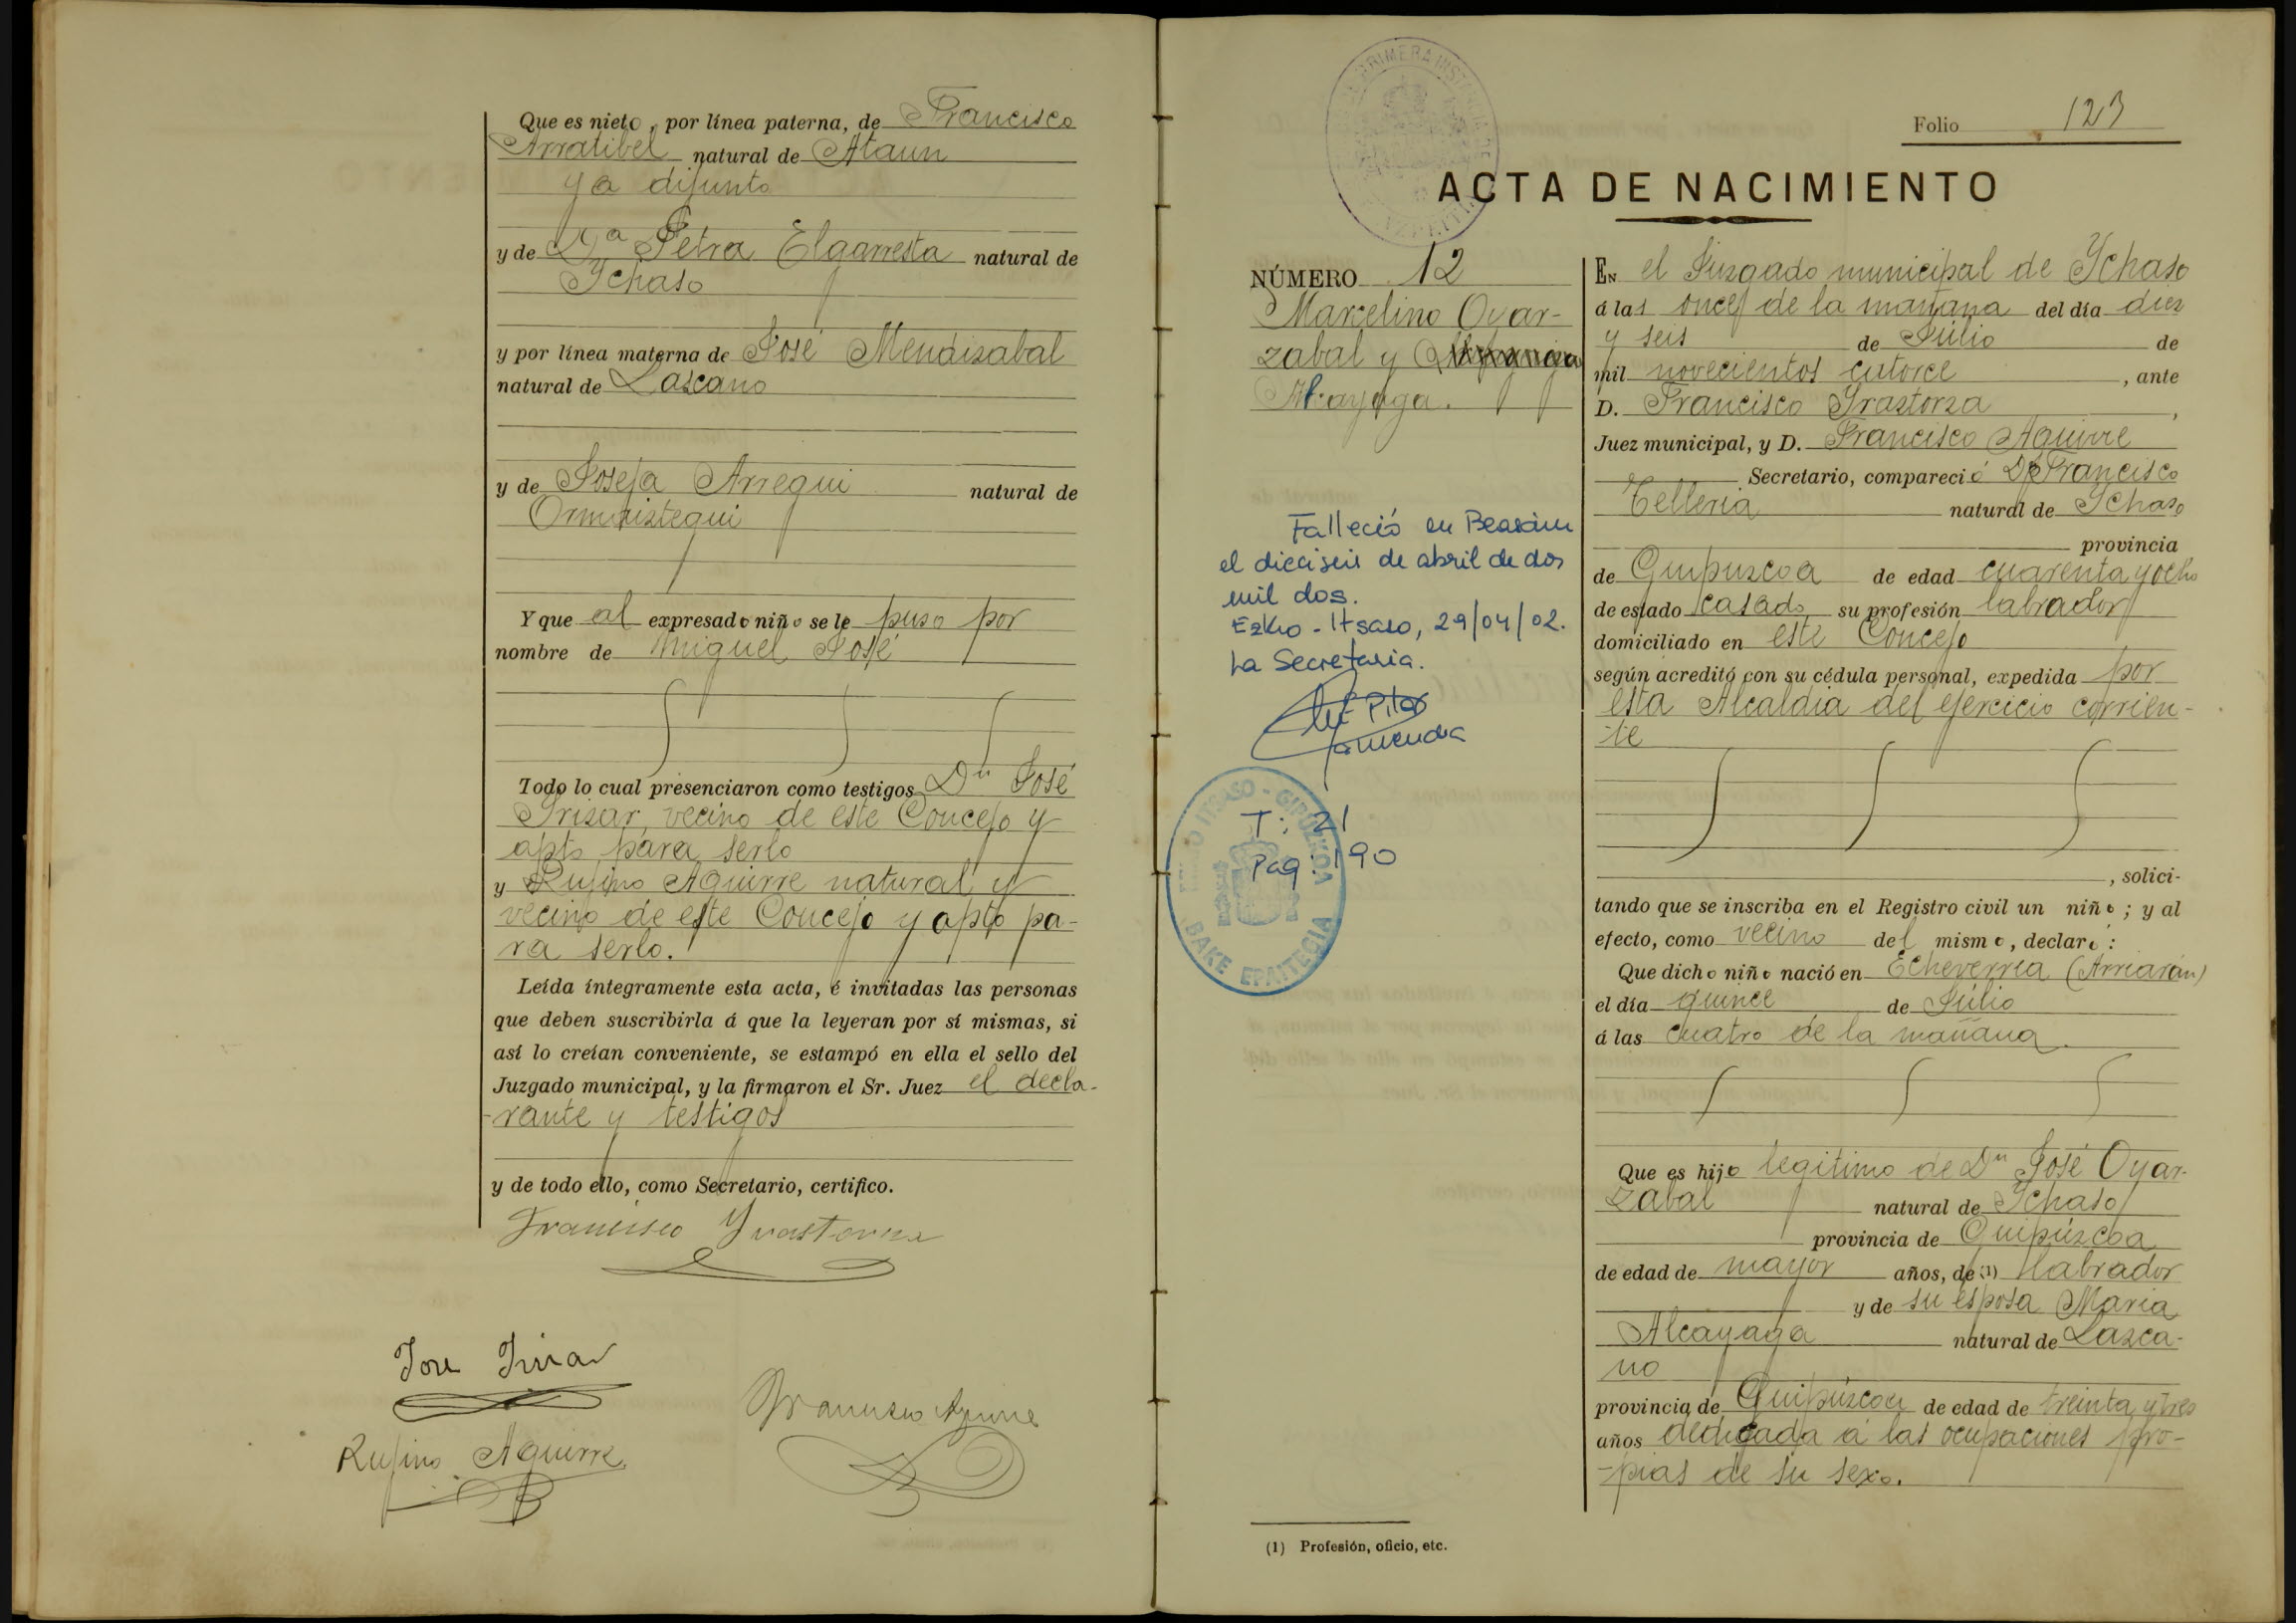 Que es nieto, por línea paterna, de Francisco
Arratibel natural de Ataun
ya difunto
y de Dª Petra Elgarresta natural de
Ychaso
y por línea materna de José Mendizabal
natural de Lazcano
y de Josefa Arregui natural de
Ormaiztegui
Y que al expresado niño se le puso por
nombre de Miguel José
Todo lo cual presenciaron como testigos Dn José
Irizar, vecino de este Concejo y
apto para serlo
y Rufino Aguirre natural y
vecino de este Concejo y apto pa-
ra serlo.
Leída íntegramente esta acta, é invitadas las personas
que deben suscribirla á que la leyeran por sí mismas, si
así lo creían conveniente, se estampó en ella el sello del
Juzgado municipal, y la firmaron el Sr. Juez el decla-
-rante y testigos
y de todo ello, como Secretario, certifico.
Francisco Yrastorza
José Irizar
Francisco Aguirre
Rufino Aguirre
Folio 123
ACTA DE NACIMIENTO
NÚMERO 12
Marcelino Oyar-
zabal y
Alcayaga.
Falleció en Beasain
el dieciseis de abril de dos
mil dos.
Ezkio-Itsaso, 29/04/02.
La Secretaria.
Mª Pilar
T: 21
Pag: 190
ITSASO - GIPUZKOA
BAKE EPAITEGIA
En el Juzgado municipal de Ychaso
á las once de la mañana del día diez
y seis de Julio de
mil novecientos catorce, ante
D. Francisco Irastorza,
Juez municipal, y D. Francisco Aguirre
Secretario, compareció Dn Francisco
Telleria natural de Ychaso
provincia
de Guipuzcoa de edad cuarenta y ocho
de estado casado su profesión labrador
domiciliado en este Concejo
según acreditó con su cédula personal, expedida por
esta Alcaldia del ejercicio corrien-
-te
, solici-
tando que se inscriba en el Registro civil un niño; y al
efecto, como vecino del mismo, declaró:
Que dicho niño nació en Echeverria (Arriarán)
el día quince de Julio
á las cuatro de la mañana.
Que es hijo legitimo de Dn José Oyar-
zabal natural de Ychaso
provincia de Guipúzcoa
de edad de mayor años, de (1) labrador
y de su esposa Maria
Alcayaga natural de Lazca-
no
provincia de Guipúzcoa de edad de treinta y tres
años dedicada á las ocupaciones pro-
-pias de su sexo.
(1) Profesión, oficio, etc.